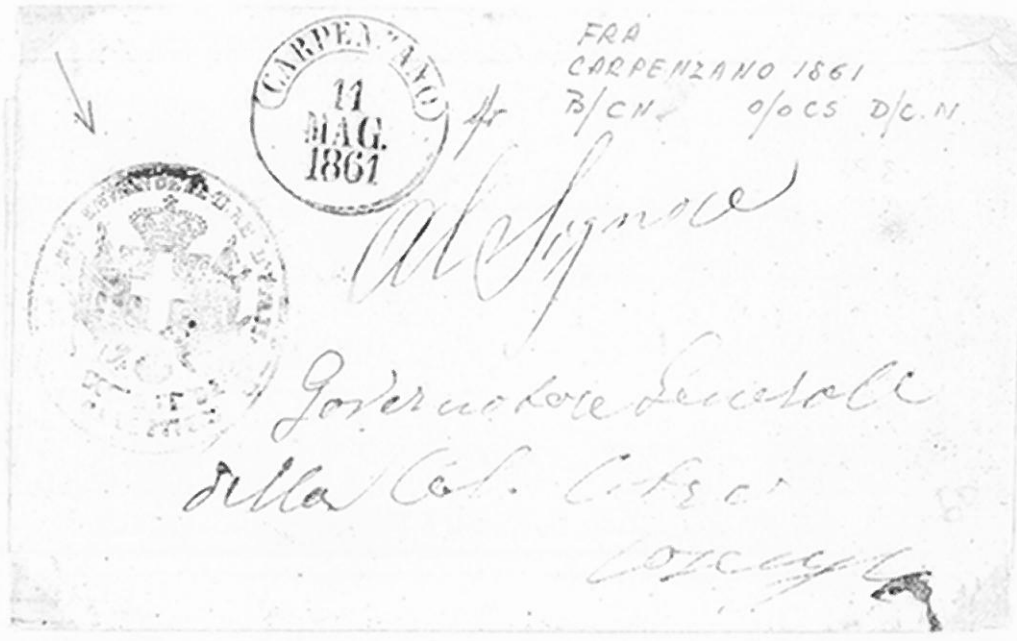 CARPENZANO
11
MAG.
1861
FRA
CARPENZANO 1861
B/CN O/OCS D/C.N.
Al Signore
Governatore Generale
della Cal. Citer
Cosenza